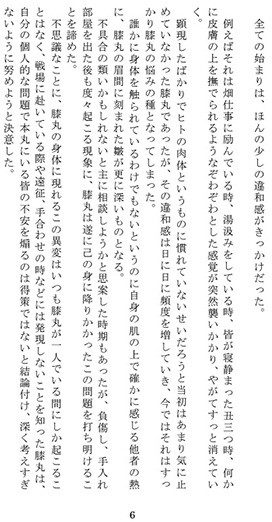 全ての始まりは、ほんの少しの違和感がきっかけだった。
例えばそれは畑仕事に励んでいる時、湯汲みをしている時、皆が寝静まった丑三つ時、何か
に皮膚の上を撫でられるようなぞわぞわとした感覚が突然襲いかかり、やがてすっと消えてい
く。
顕現したばかりでヒトの肉体というものに慣れていないせいだろうと当初はあまり気に止
めていなかった膝丸であったが、その違和感は日に日に頻度を増していき、今ではそれはすっ
かり膝丸の悩みの種となってしまった。
誰かに身体を触られているわけでもないというのに自身の肌の上で確かに感じる他者の熱
に、膝丸の眉間に刻まれた皺が更に深いものとなる。
不具合の類いかもしれないと主に相談しようかと思案した時期もあったが、負傷し、手入れ
部屋を出た後も度々起こる現象に、膝丸は遂に己の身に降りかかったこの問題を打ち明けるこ
とを諦めた。
不思議なことに、膝丸の身体に現れるこの異変はいつも膝丸が一人でいる間にしか起こるこ
とはなく、戦場に赴いている際や遠征、手合わせの時などには発現しないことを知った膝丸は、
自分の個人的な問題で本丸にいる皆の不安を煽るのは得策ではないと結論付け、深く考えすぎ
ないように努めようと決意した。
6